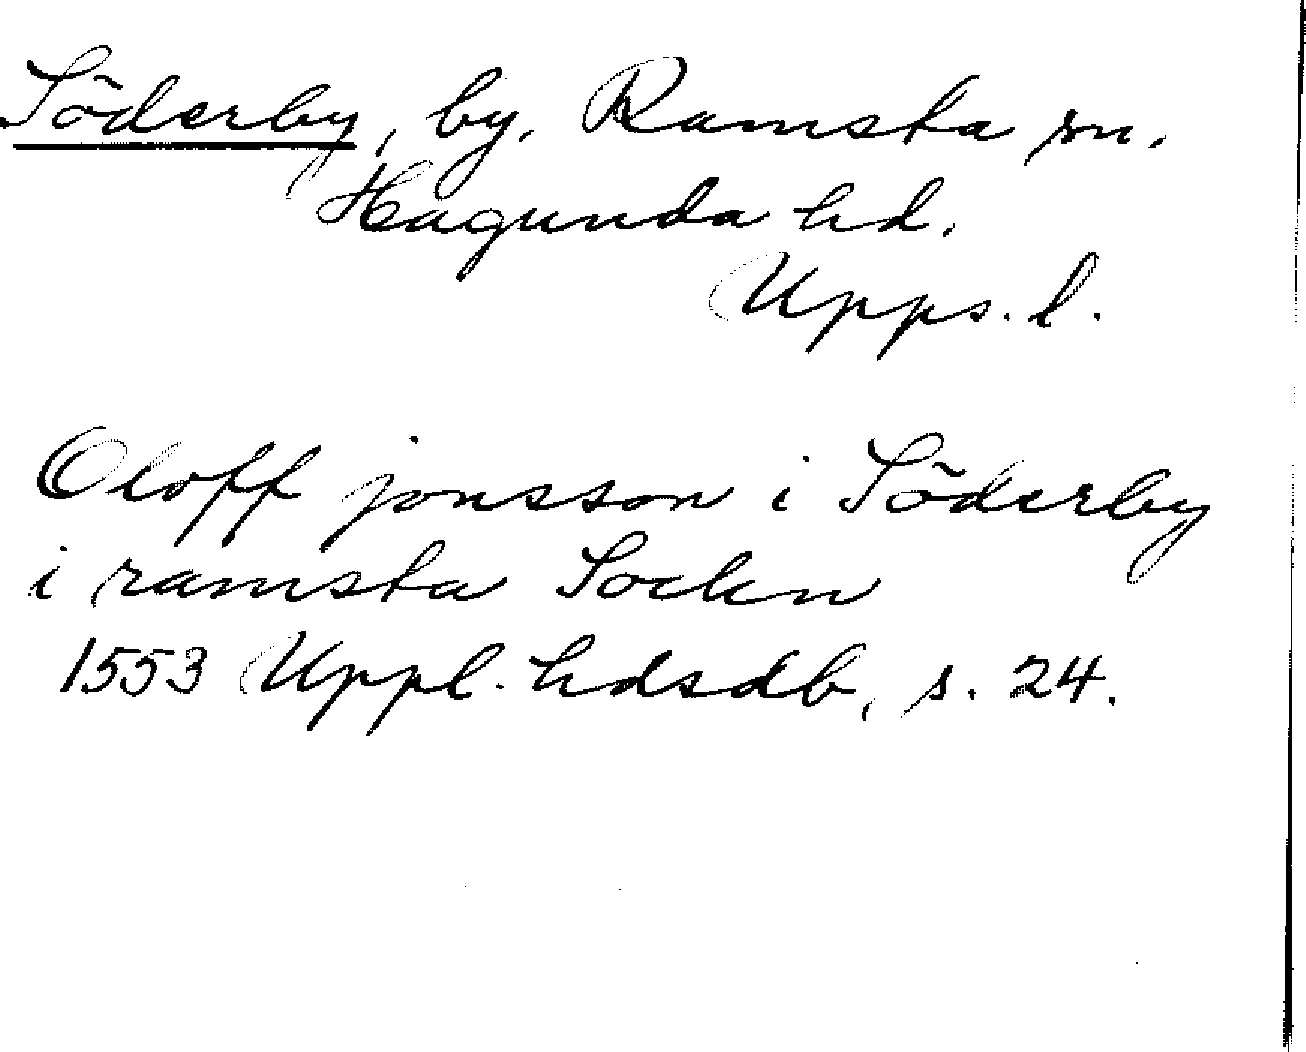 Söderby, by. Ramsta sn.
Hagunda hd.
Upps. l.
Oloff jonsson i Söderby
i ramsta Sockn
1553 Uppl. hdsdb, s. 24.